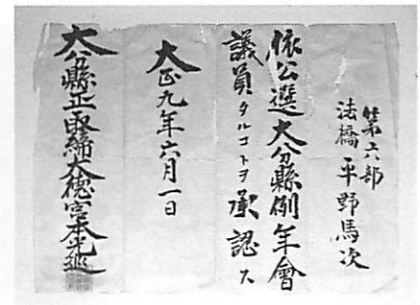 第六部
法橋 平野馬次
依公選大分縣例年會
議員タルコトヲ承認ス
大正九年六月一日
大分縣正取締大德宮本光巡